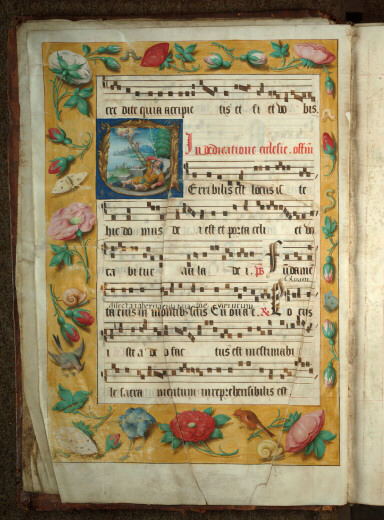 cre dite quia accipie tis et fi et vo bis.
In dedicatione ecclesie. offm
Erribilis est locus is te
hic do mus de i est et porta celi et vo
ca bi tur au la de i. ps Fundame
ta eius in montibus sanctis Euouae. R Lo cus
i ste a de o fac tus est inestimabi
le sacra mentum inreprehensibilis est